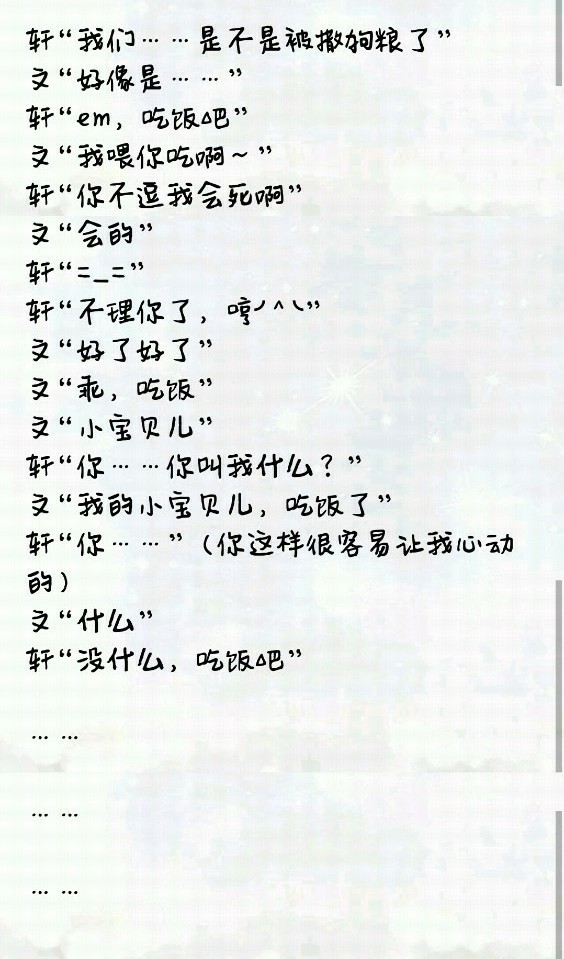 轩“我们……是不是被撒狗粮了”
文“好像是……”
轩“em，吃饭吧”
文“我喂你吃啊～”
轩“你不逗我会死啊”
文“会的”
轩“=_=”
轩“不理你了，哼╯^╰”
文“好了好了”
文“乖，吃饭”
文“小宝贝儿”
轩“你……你叫我什么？”
文“我的小宝贝儿，吃饭了”
轩“你……”（你这样很容易让我心动
的）
文“什么”
轩“没什么，吃饭吧”
… …
… …
… …